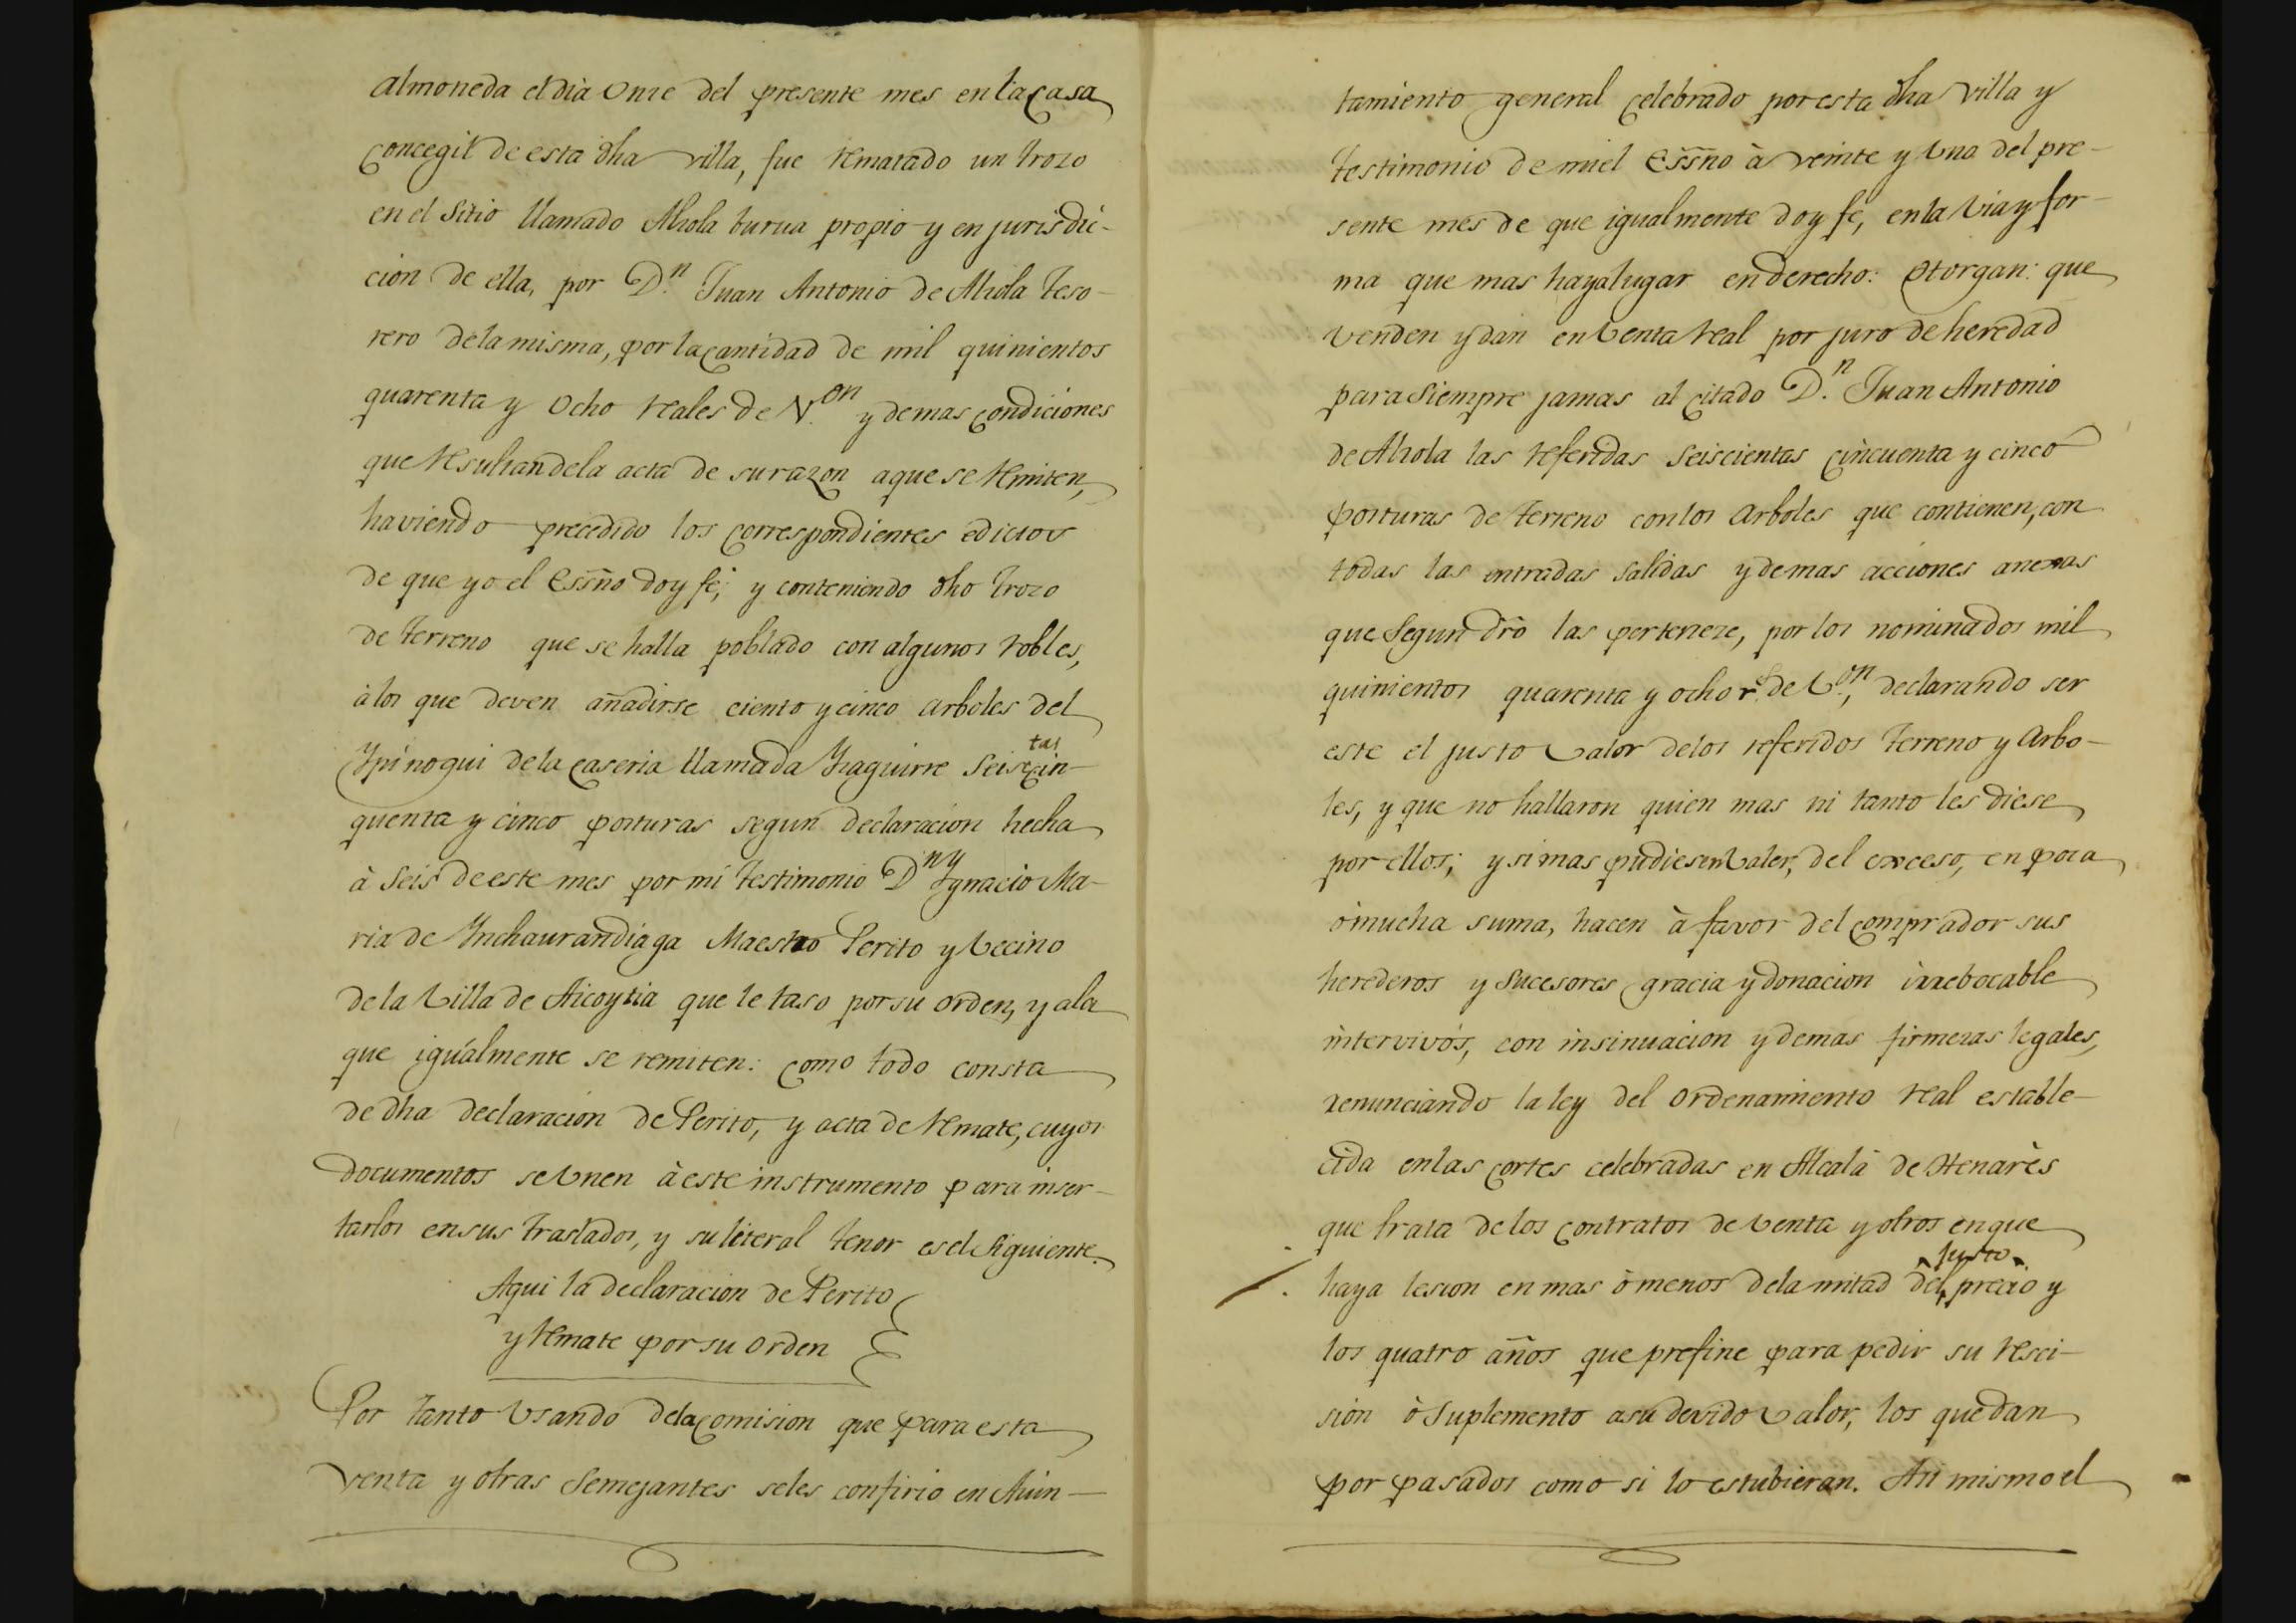 almoneda el dia Onze del presente mes en la casa
concegil de esta dha villa, fue rematado un trozo
en el sitio llamado Alzola burua propio y en jurisdic-
cion de ella, por D.n Juan Antonio de Alzola Teso-
rero de la misma, por la cantidad de mil quinientos
quarenta y Ocho reales de V.on y demas condiciones
que resultan de la acta de su razon a que se remiten,
haviendo precedido los correspondientes edictos
de que yo el Essño doy fé; y conteniendo dho trozo
de terreno que se halla poblado con algunos robles,
à los que deven añadirse ciento y cinco arboles del
Ypinogui de la caseria llamada Yzaguirre Seistas cin-
quenta y cinco posturas segun declaracion hecha
à Seis de este mes por mi testimonio Dn Ygnacio Ma-
ria de Ynchaurandiaga Maestro Perito y Vecino
de la Villa de Azcoytia que le taso por su orden, y a la
que igualmente se remiten: como todo consta
de dha declaracion de Perito, y acta de remate, cuyos
documentos se Unen à este instrumento para inser-
tarlos en sus traslados, y su literal tenor es el siguiente.
Aqui la declaracion de Perito
y remate por su orden
Por tanto Usando de la comision que para esta
venta y otras semejantes se les confirio en Aiun-
tamiento general celebrado por esta dha villa y
testimonio de mi el Essño à veinte y Una del pre-
sente mes de que igualmente doy fe, en la Via y for-
ma que mas haya lugar en derecho: Otorgan: que
venden y dan en Venta real por juro de heredad
para siempre jamas al citado D.n Juan Antonio
de Alzola las referidas seiscientas cincuenta y cinco
posturas de terreno con los arboles que contienen, con
todas las entradas salidas y demas acciones anexas
que segun dro las perteneze, por los nominados mil
quinientos quarenta y ocho r.s de V.on, declarando ser
este el justo Valor de los referidos terreno y arbo-
les, y que no hallaron quien mas ni tanto les diese
por ellos; y si mas pudiesen Valer, del exceso, en poca
ò mucha suma, hacen à favor del comprador sus
herederos y sucesores gracia y donacion irrebocable
intervivos, con insinuacion y demas firmezas legales,
renunciando la ley del Ordenamiento real estable-
cida en las cortes celebradas en Alcalà de Henarès
que trata de los contratos de Venta y otros en que
haya lesion en mas ò menos de la mitad del justo precio y
los quatro años que prefine para pedir su resci-
sion ò suplemento a su devido Valor, los que dan
por pasados como si lo estubieran. Asi mismo el